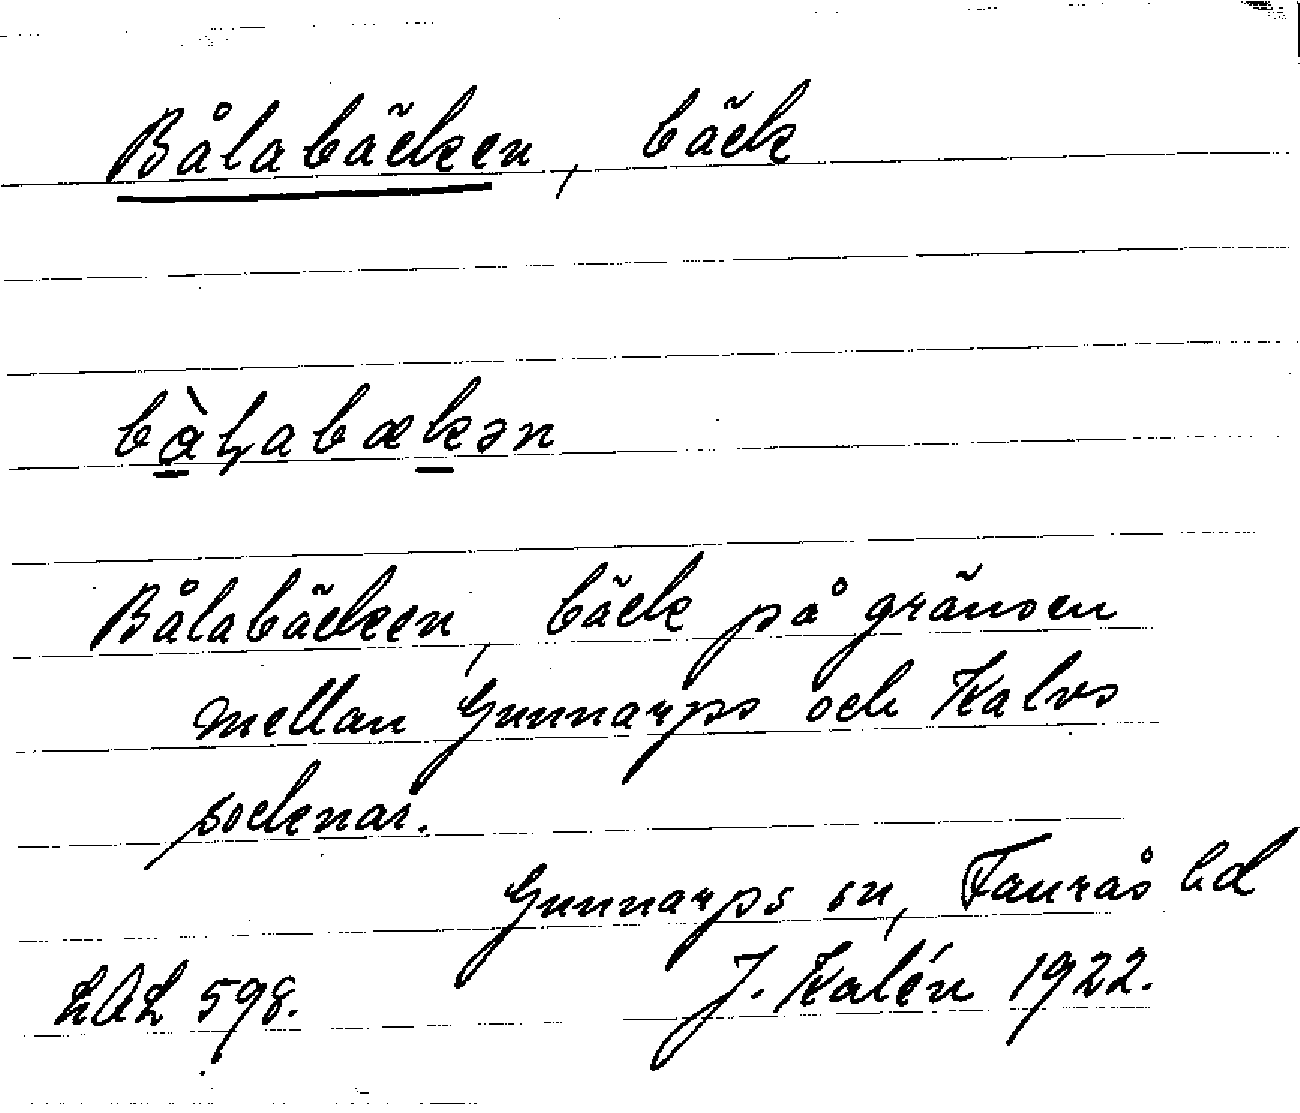 Bålabäcken, bäck
bàⱡabækən
Bålabäcken, bäck på gränsen
mellan Gunnarps och Kalvs
socknar.
Gunnarps sn, Faurås hd
LAL 598. J. Kalén 1922.